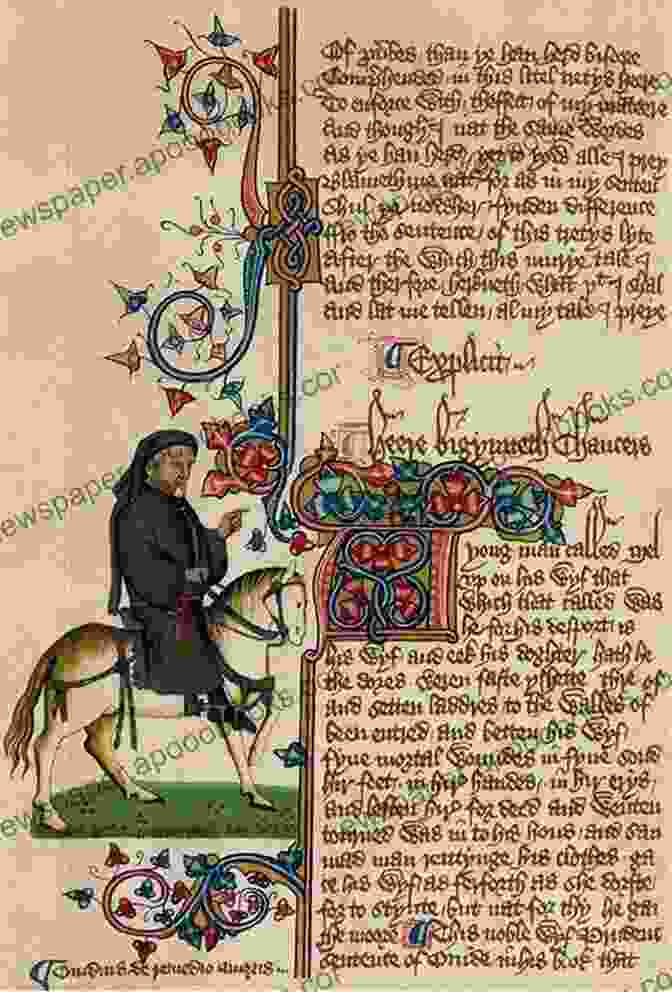 Of proủbes than ye han herd bifore
Comprehended in this litel tretys heere
To enforce with theffect of my mateere
And though I nat the same wordes
As ye han herd yet to yow alle I prey
Blameth me nat for as in my sentenc
Shul ye nowher fynden difference
Fro the sentence of this tretys lyte
After the which this murye tale I
And therfore herkneth what yt I shal
And lat me tellen al my tale I preye
Explicit
Heere bigynneth Chaucers
A yong man called Mel
vp on his wyf that
which that called was
he for his desport is
his wyf and eek his doghter hath he
the dores weren faste yshette thre of
and setten laddres to the walles of
been entred and betten his wyf
fyue mortal woundes in fyue sond
hir feet in hir handes in hir erys
and leften hir for deed and wenten
torned was in to his hous and saugh
mad man rentynge his clothes ga
te his wyf as ferforth as she dorste
for to stynte but nat for thy he gan
the moore This noble wyf Prudenc
sentence of Ouide in his book that
Ouidius de remedio amoris
newspaper.apooobooks.com